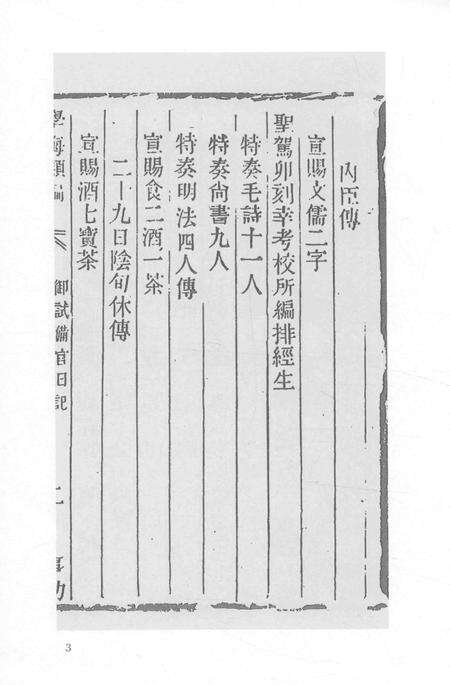 內臣傳
宣賜文儒二字
聖駕卯刻幸考校所編排經生
特奏毛詩十一人
特奏尙書九人
特奏明法四人傳
宣賜食二酒一茶
二十九日陰旬休傳
宣賜酒七寶茶
學海類編
御試備官日記
二
事功
3